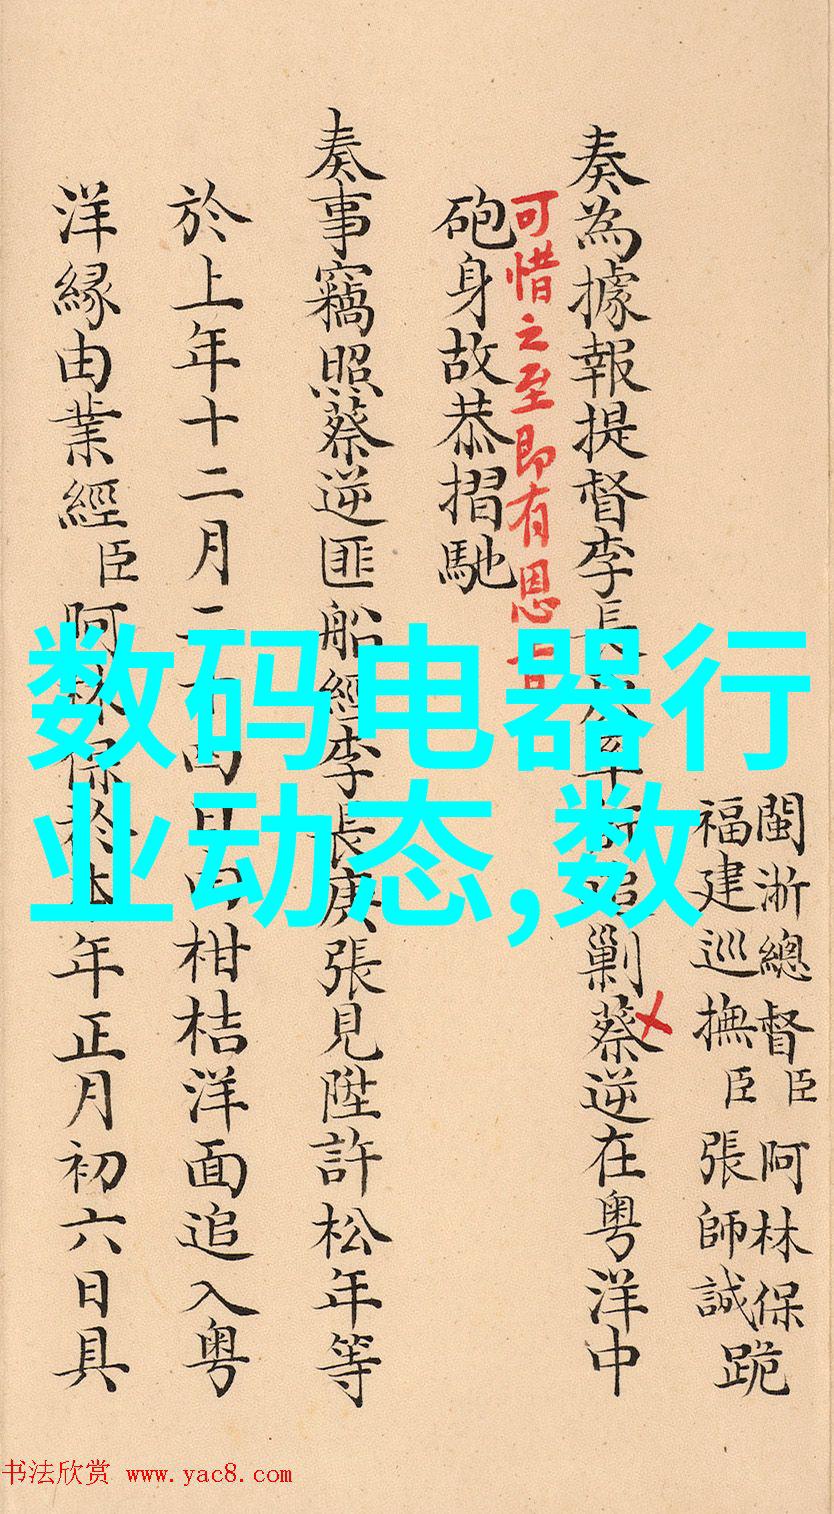 閩浙總督臣阿林保
福建巡撫臣張師誠
跪
奏為據報提督李長追剿蔡逆在粵洋中
可惜之至即有恩旨
砲身故恭摺馳
奏事竊照蔡逆匪船經李長庚張見陞許松年等
於上年十二月二十日由柑桔洋面追入粵
洋緣由業經臣阿林保於本年正月初六日具
数码电器行
业动态,数
书法欣赏 www.yac8.com